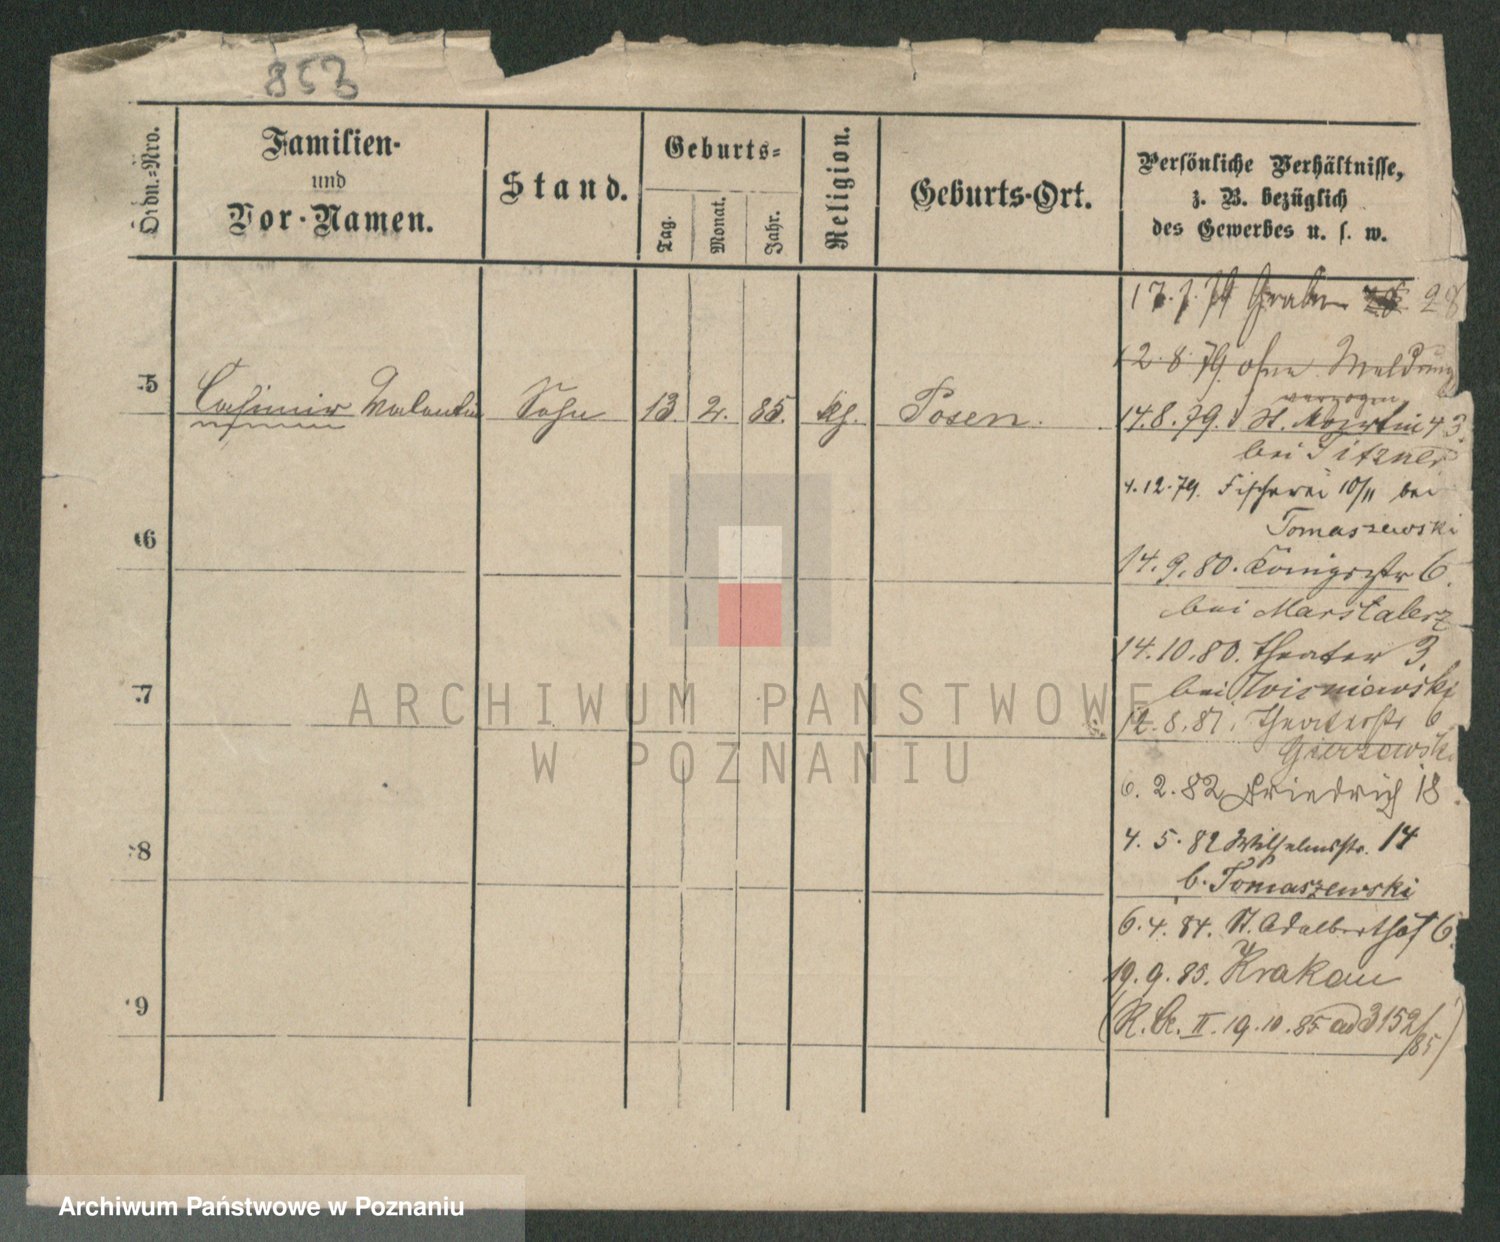 853
Ordn.-Nro.
Familien-
und
Vor-Namen.
Stand.
Geburts-
Tag.
Monat.
Jahr.
Religion.
Geburts-Ort.
Persönliche Verhältnisse,
z. B. bezüglich
des Gewerbes u. s. w.
17.7.79 Graben 28
12.8.79. ohne Meldung
verzogen
5 Casimir Valentin Sohn 13. 2. 85. kth. Posen.
14.8.79. St. Martin 43.
bei Titzner
4.12.79. Fischerei 10/11 bei
Tomaszewski
6
14.9.80. Königsstr 6.
bei Marstalerz
14.10.80. Theater 3.
bei Wisniewski
7
12.8.81. Theaterstr 6
6. 2. 82 Friedrich 18.
8
4. 5. 82 Wilhelmsstr. 14
b. Tomaszewski
6. 4. 84. St. Adalberthof 6.
19. 9. 85. Krakau
9
(R. Be. II. 19. 10. 85 ad 3152/85)
ARCHIWUM PAŃSTWOWE
W POZNANIU
Archiwum Państwowe w Poznaniu